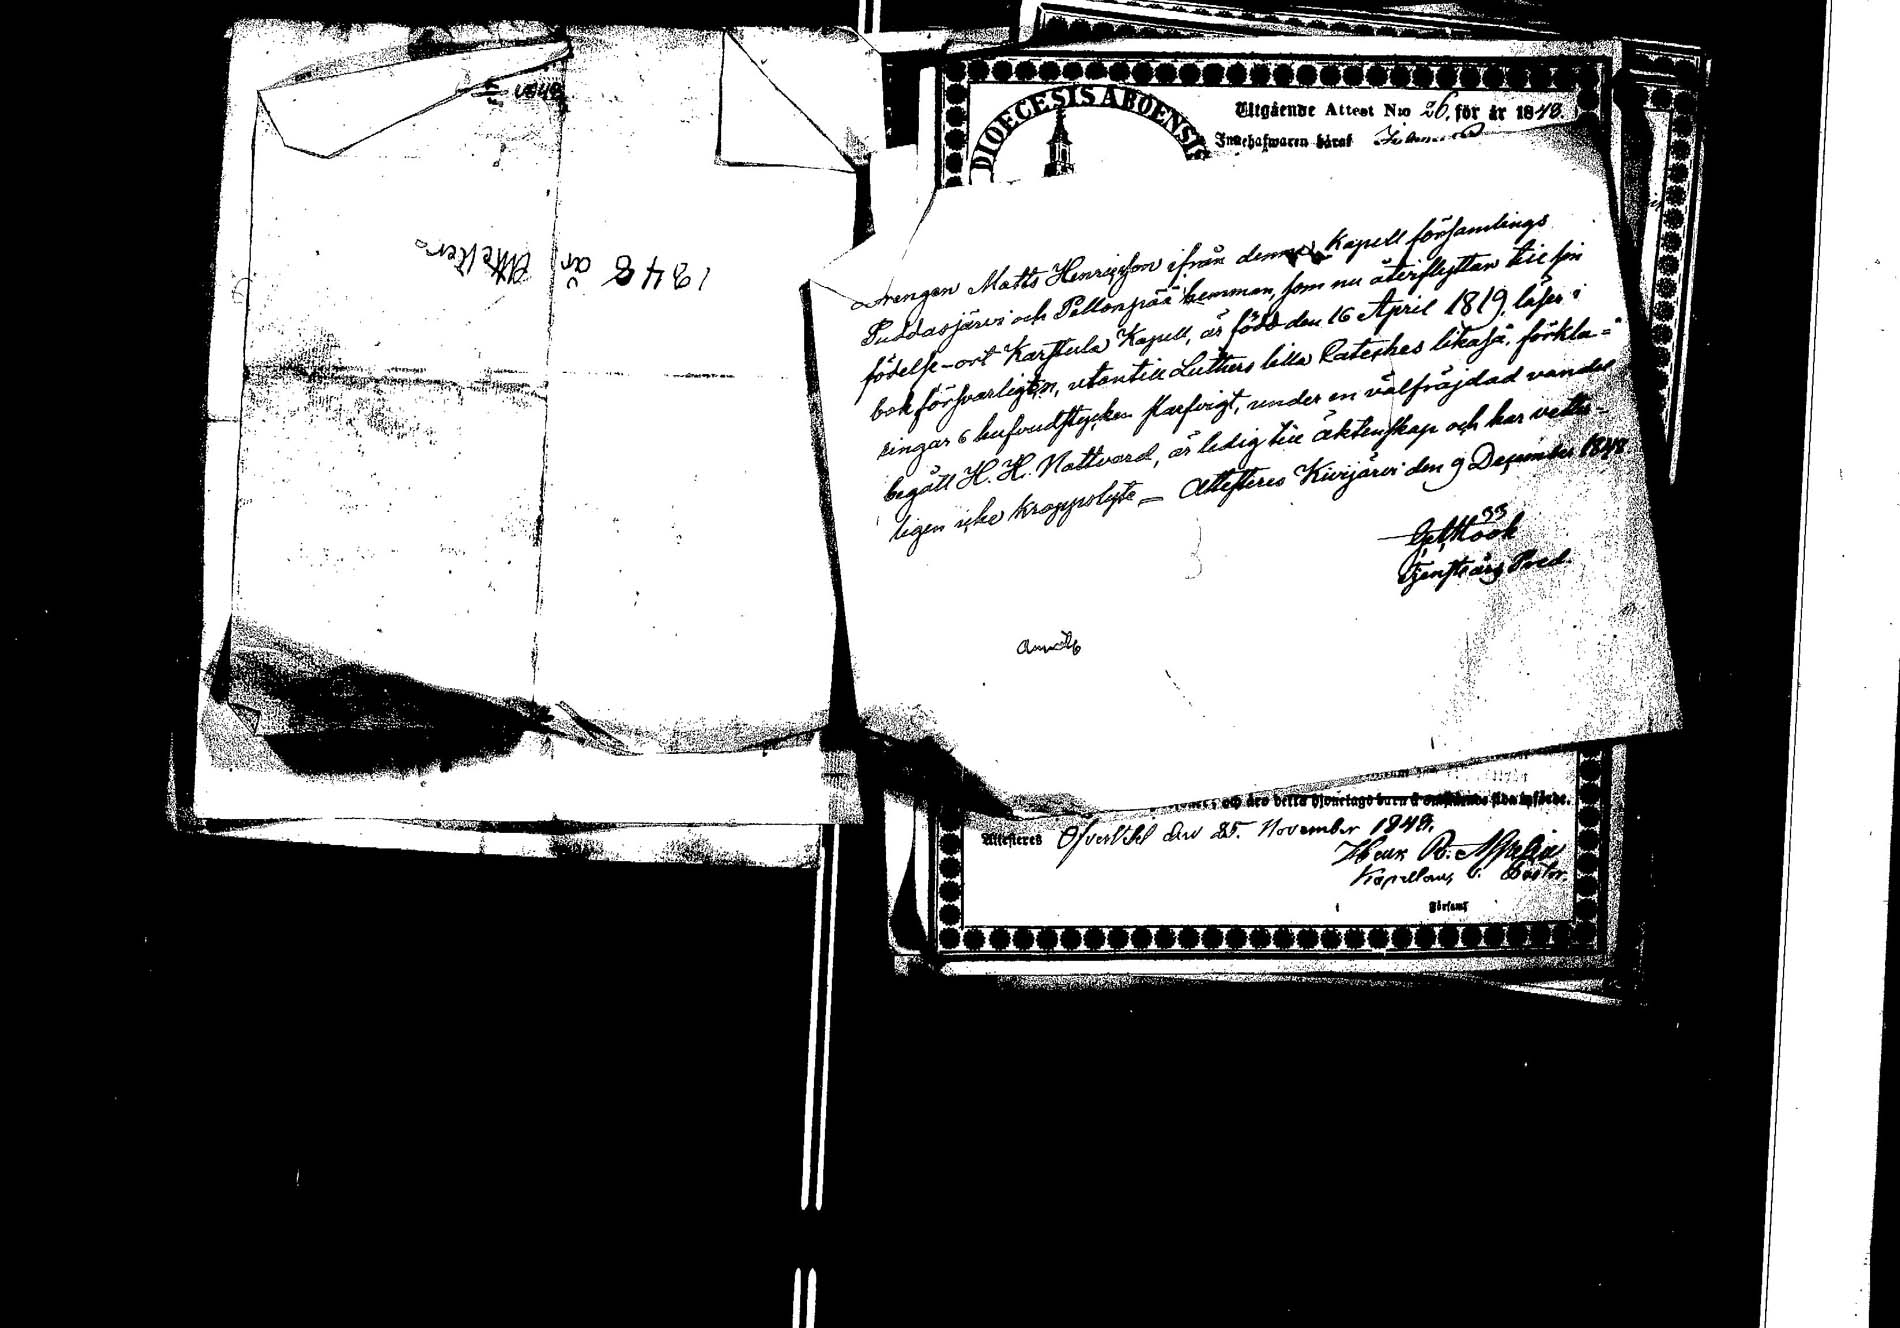 1848 år Attester.
DIOECESIS ABOENSIS
Utgående Attest N:o 26. för år 1848.
Innehafwaren häraf
Drengen Matts Henricsson ifrån denna Kapell församlings
Puddasjärvi och Pellonpää hemman, som nu återflyttar till sin
födelse-ort Karstula Kapell, är född den 16 April 1819, läser i
bok försvarligen, utantill Luthers lilla Cateches likaså, förkla-
ringar 6 hufvudstycken skarfvigt, under en välfräjdad vandel
begått H. H. Nattvard, är ledig till äktenskap och har vetter-
ligen icke kroppslyte — Attesteres Kivijärvi den 9 December 1848
33
Tjenstgörg Pred.
och äro detta hjonelags barn å omstående sida införde.
Attesteres den 25. November 1848.
Kapellan, v. Pastor.